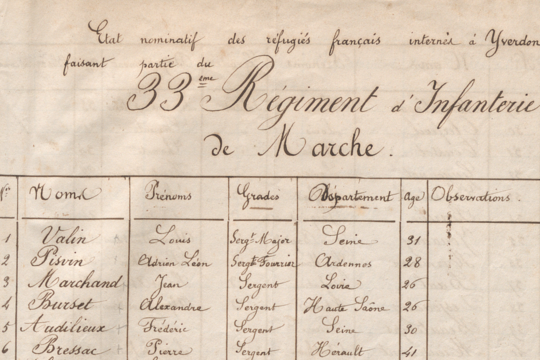 Etat nominatif des réfugiés français internés à Yverdon
faisant partie du
33ème Régiment d'Infanterie
de Marche.
Nos Noms Prénoms Grades Département Age Observations.
1 Valin Louis Sergt-Major Seine 31
2 Pisvin Adrien Léon Sergt Fourrier Ardennes 28
3 Marchand Jean Sergent Loire 26
4 Burset Alexandre Sergent Haute Saône 26
5 Audilieux Frédéric Sergent Seine 30
6 Bressac Pierre Sergent Hérault 41